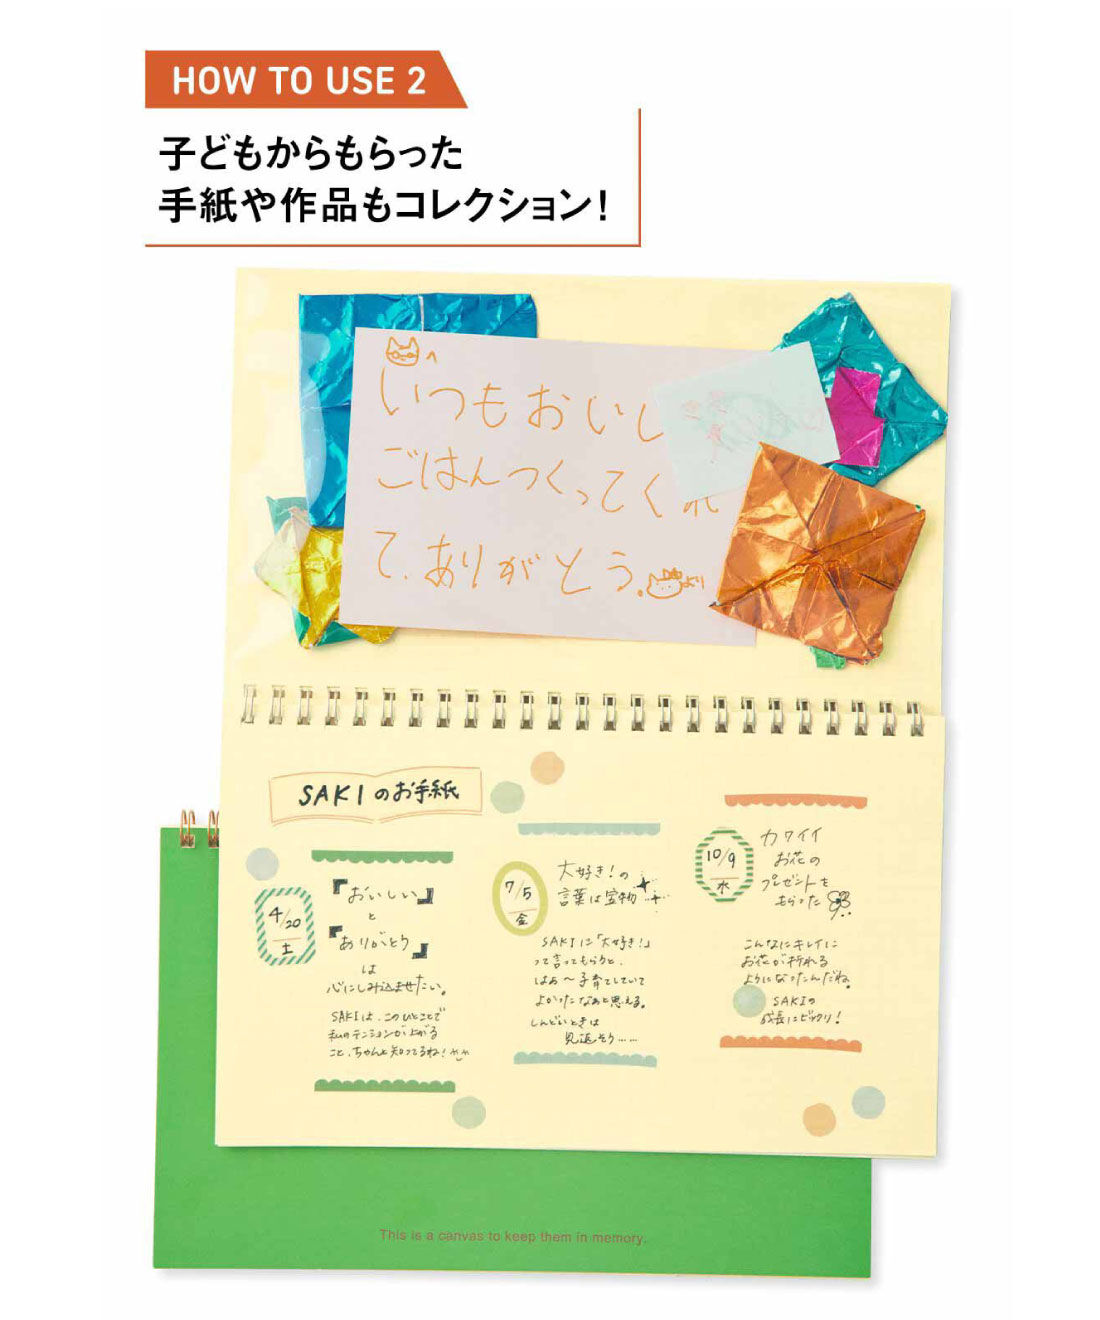 HOW TO USE 2
子どもからもらった
手紙や作品もコレクション！
へ
いつもおいし
ごはんつくってくれ
て、ありがとう。
より
SAKIのお手紙
4/20
土
『おいしい』
と
『ありがとう』
は
心にしみ込ませたい。
SAKIは、このひとことで
私のテンションが上がる
こと、ちゃんと知ってるね！
7/5
金
大好き！の
言葉は宝物
SAKIに「大好き！」
って言ってもらうと、
はぁ〜子育てしていて
よかったなぁと思える。
しんどいときは
見返そう……
10/9
水
カワイイ
お花の
プレゼントを
もらった
こんなにキレイに
お花が折れる
ようになったんだね。
SAKIの
成長にビックリ！
This is a canvas to keep them in memory.